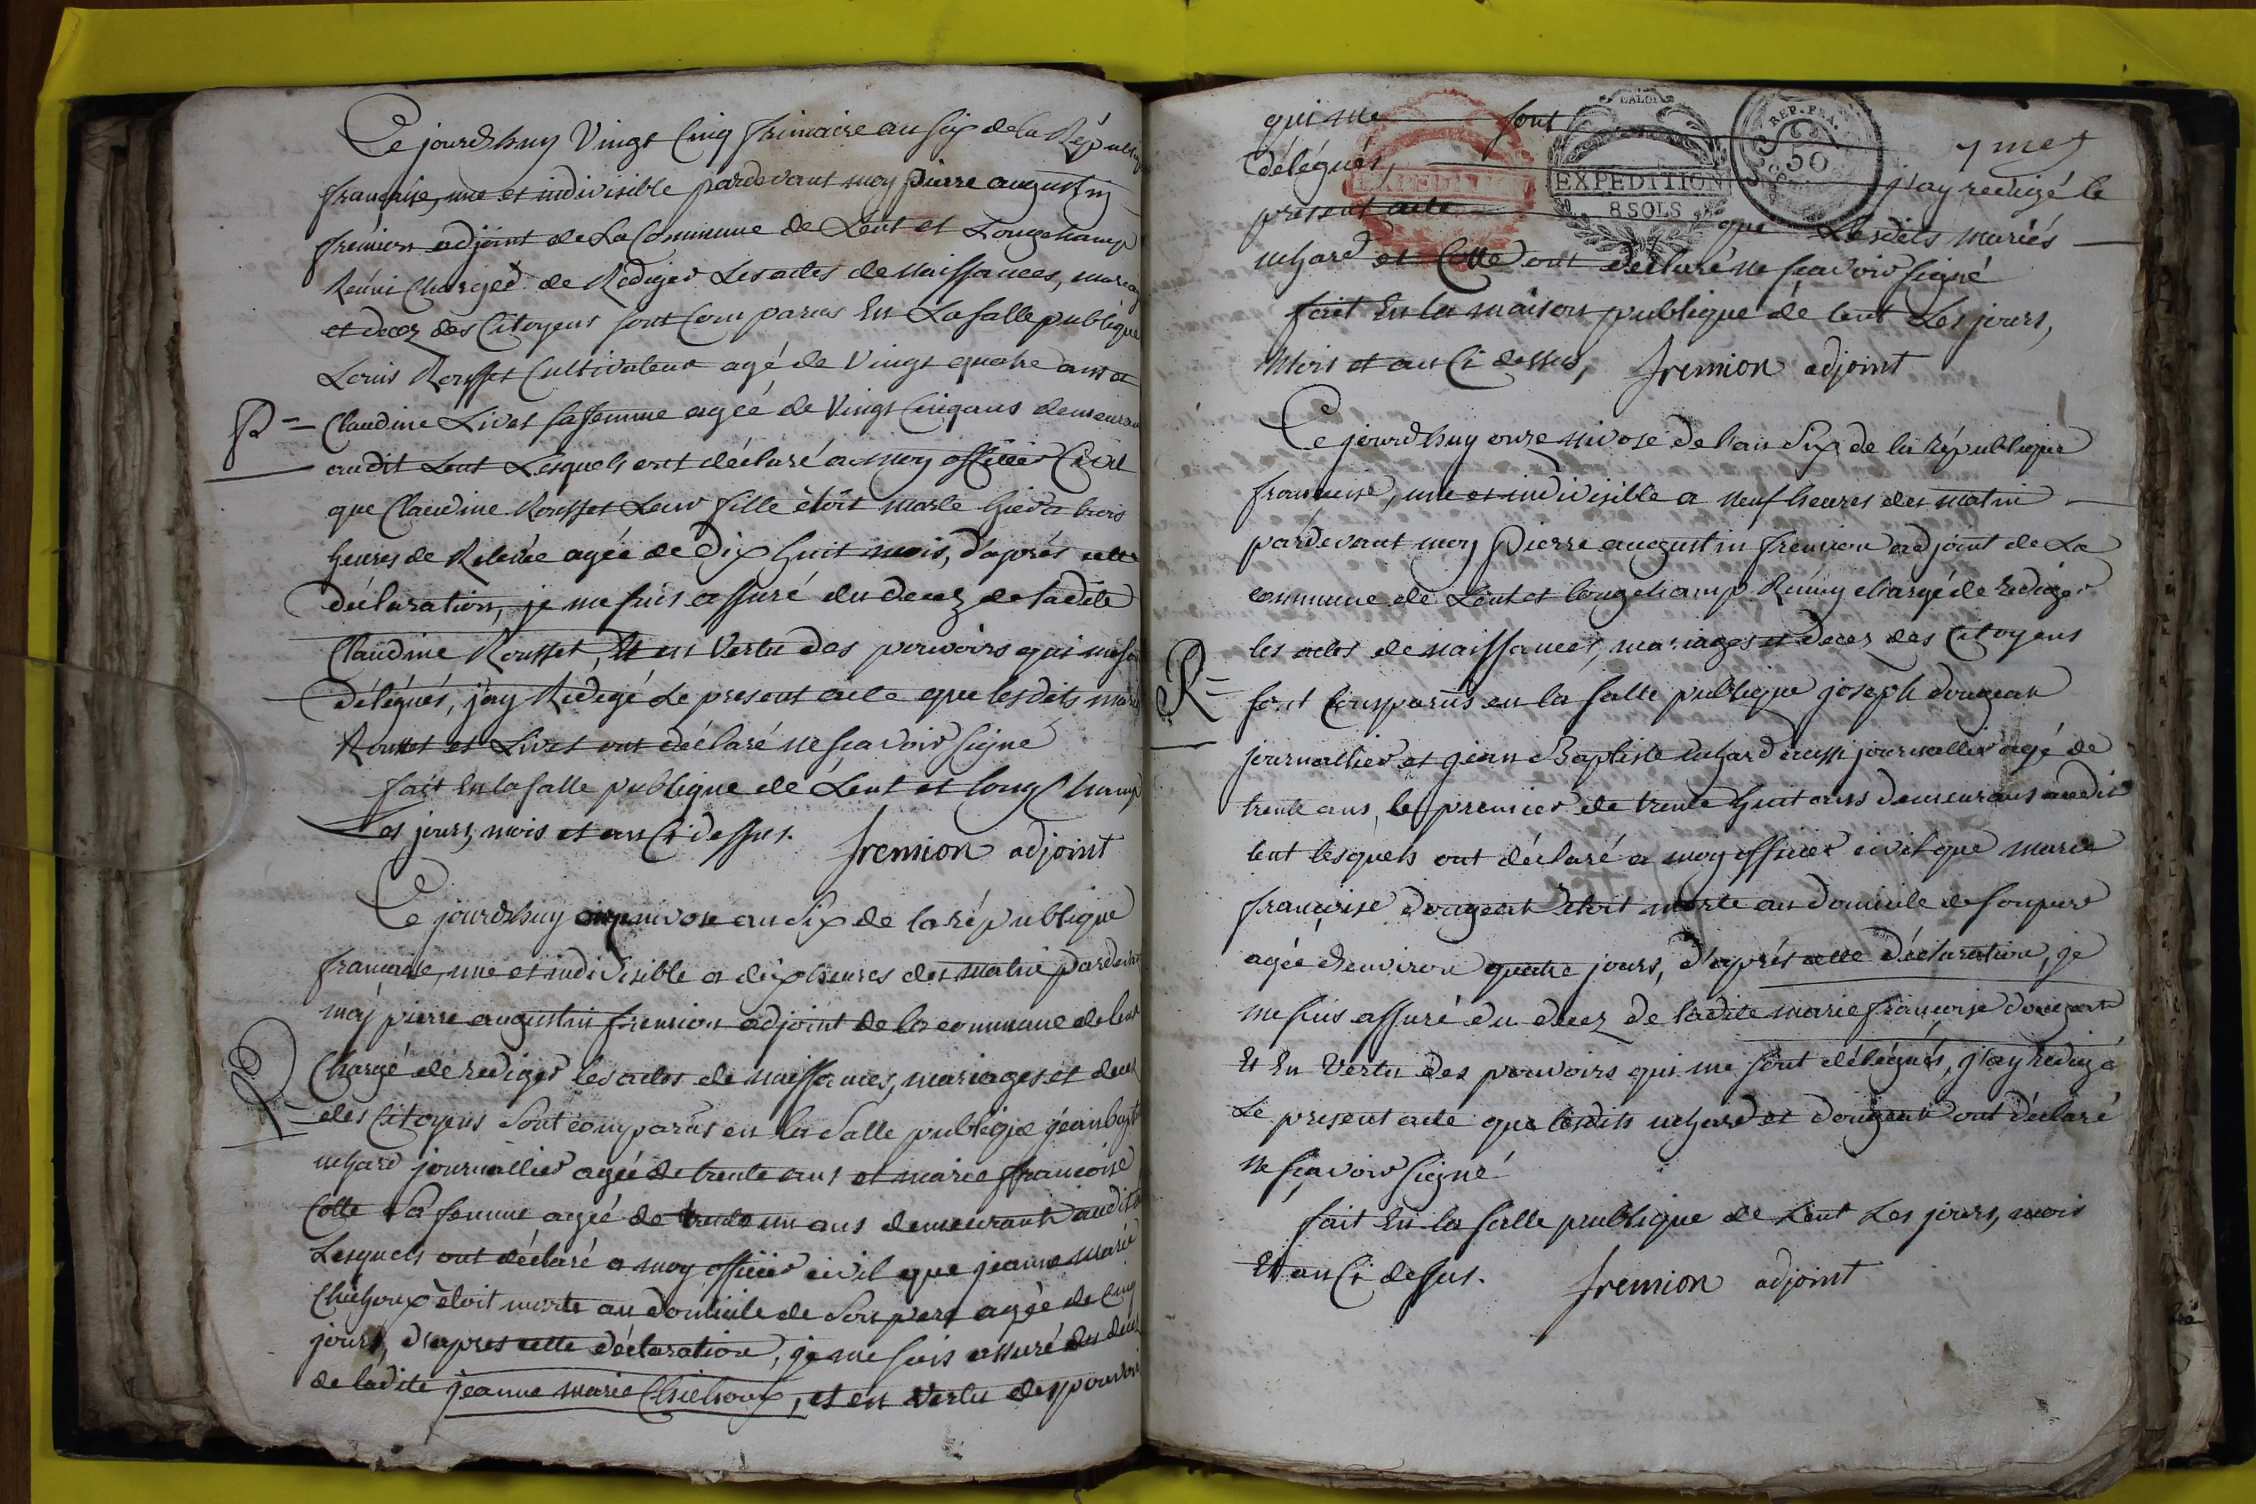 Ce jourd'huy Vingt Cinq frimaire an six de la Républiq
française, une et indivisible pardevant moy pierre augustin
frémion adjoint de La Commune de Lent et Longchamp
Réuni Chargé de Rediger Les actes de naissances, mariag
et decez des Citoyens sont Comparus En La salle publique
Louis Rousset Cultivateur agé de Vingt quatre ans et
P = Claudine Livet sa femme agée de Vingt Cinq ans demeuran
audit Lent Lesquels ont déclaré a moy officier Civil
que Claudine Rousset Leur fille étoit morte hier a trois
heures de Relevée agée de Dix huit mois, d'après cette
déclaration, je me suis assuré du decez de ladite
Claudine Rousset, Et en Vertu des pouvoirs qui me son
délégués, j'ay Redigé Le present acte que lesdits mar
Rousset et Livet ont déclaré ne sçavoir signé
fait En la salle publique de Lent et Longchamp
Les jours, mois et an Ci dessus. fremion adjoint
Ce jourd'huy onze nivose an Six de la république
française, une et indivisible a dix heures du matin pardevant
moy pierre augustin fremion adjoint de la commune de lent
Chargé de rediger les actes de naissances, mariages et decez
R = des Citoyens Sont comparus en la Salle publique jean bapt
uchard journallier agée de trente ans et marie francoise
Colle Sa femme agée de trente un ans demeurant audit
Lesquels ont déclaré a moy officier civil que jeanne marie
Chichoux étoit morte au domicile de Son pere agée de Cinq
jours, d'apres cette déclaration, je me suis assuré du decez
de ladite jeanne marie Chichoux, et en vertu des pouvoirs
REP. FRA.
50
EXPEDITION
8 SOLS
EXPEDITION
qui me sont
délégués, j'ay redigé le
present acte que Lesdits mariés
uchard et Colle ont déclaré ne sçavoir signé
fait En la maison publique de lent Les jours,
Mois et an Ci dessus, fremion adjoint
Ce jourd'huy onze nivose de l'an Six de la République
française, une et indivisible a neuf heures du matin
pardevant moy Pierre augustin fremion adjoint de La
commune de Lent et Longchamp Réuny chargé de rediger
les actes de naissances, mariages et decez des Citoyens
R = sont Comparus en la salle publique joseph dougeat
journallier et jean Baptiste uchard aussi journallier agé de
trente ans, le premier de trente huit ans demeurans audit
lent lesquels ont déclaré a moy officier civil que marie
françoise dougeat étoit morte au domicile de son pere
agée d'environ quatre jours, d'après cette déclaration, je
me suis assuré du decez de ladite marie françoise dougeat
Et En Vertu des pouvoirs qui me sont délégués, j'ay redigé
Le present acte que lesdits uchard et dougeat ont déclaré
ne sçavoir signé
fait En la salle publique de Lent Les jours, mois
Et an Ci dessus. fremion adjoint